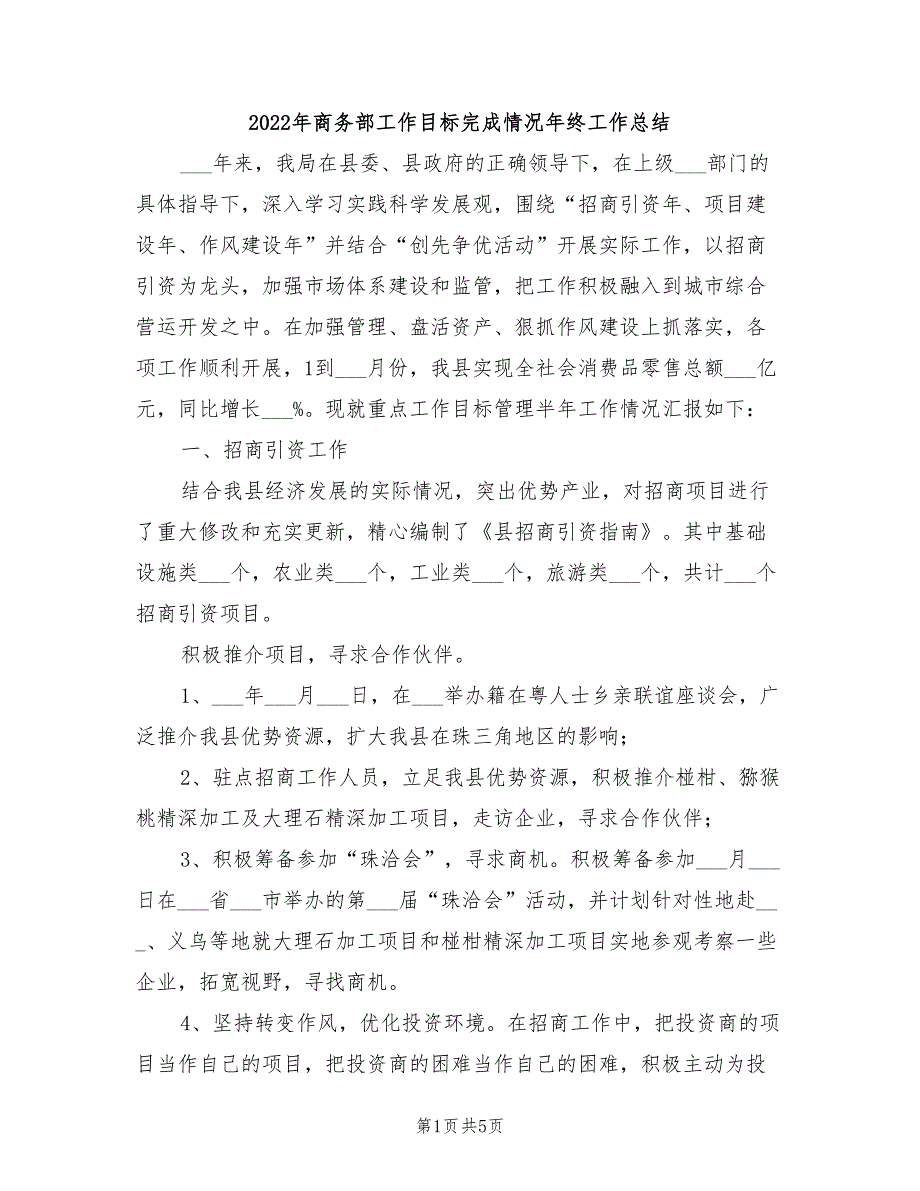 2022年商务部工作目标完成情况年终工作总结
___年来，我局在县委、县政府的正确领导下，在上级___部门的
具体指导下，深入学习实践科学发展观，围绕“招商引资年、项目建
设年、作风建设年”并结合“创先争优活动”开展实际工作，以招商
引资为龙头，加强市场体系建设和监管，把工作积极融入到城市综合
营运开发之中。在加强管理、盘活资产、狠抓作风建设上抓落实，各
项工作顺利开展，1到___月份，我县实现全社会消费品零售总额___亿
元，同比增长___%。现就重点工作目标管理半年工作情况汇报如下：
一、招商引资工作
结合我县经济发展的实际情况，突出优势产业，对招商项目进行
了重大修改和充实更新，精心编制了《县招商引资指南》。其中基础
设施类___个，农业类___个，工业类___个，旅游类___个，共计___个
招商引资项目。
积极推介项目，寻求合作伙伴。
1、___年___月___日，在___举办籍在粤人士乡亲联谊座谈会，广
泛推介我县优势资源，扩大我县在珠三角地区的影响；
2、驻点招商工作人员，立足我县优势资源，积极推介椪柑、猕猴
桃精深加工及大理石精深加工项目，走访企业，寻求合作伙伴；
3、积极筹备参加“珠洽会”，寻求商机。积极筹备参加___月___
日在___省___市举办的第___届“珠洽会”活动，并计划针对性地赴__
_、义乌等地就大理石加工项目和椪柑精深加工项目实地参观考察一些
企业，拓宽视野，寻找商机。
4、坚持转变作风，优化投资环境。在招商工作中，把投资商的项
目当作自己的项目，把投资商的困难当作自己的困难，积极主动为投
第1页共5页